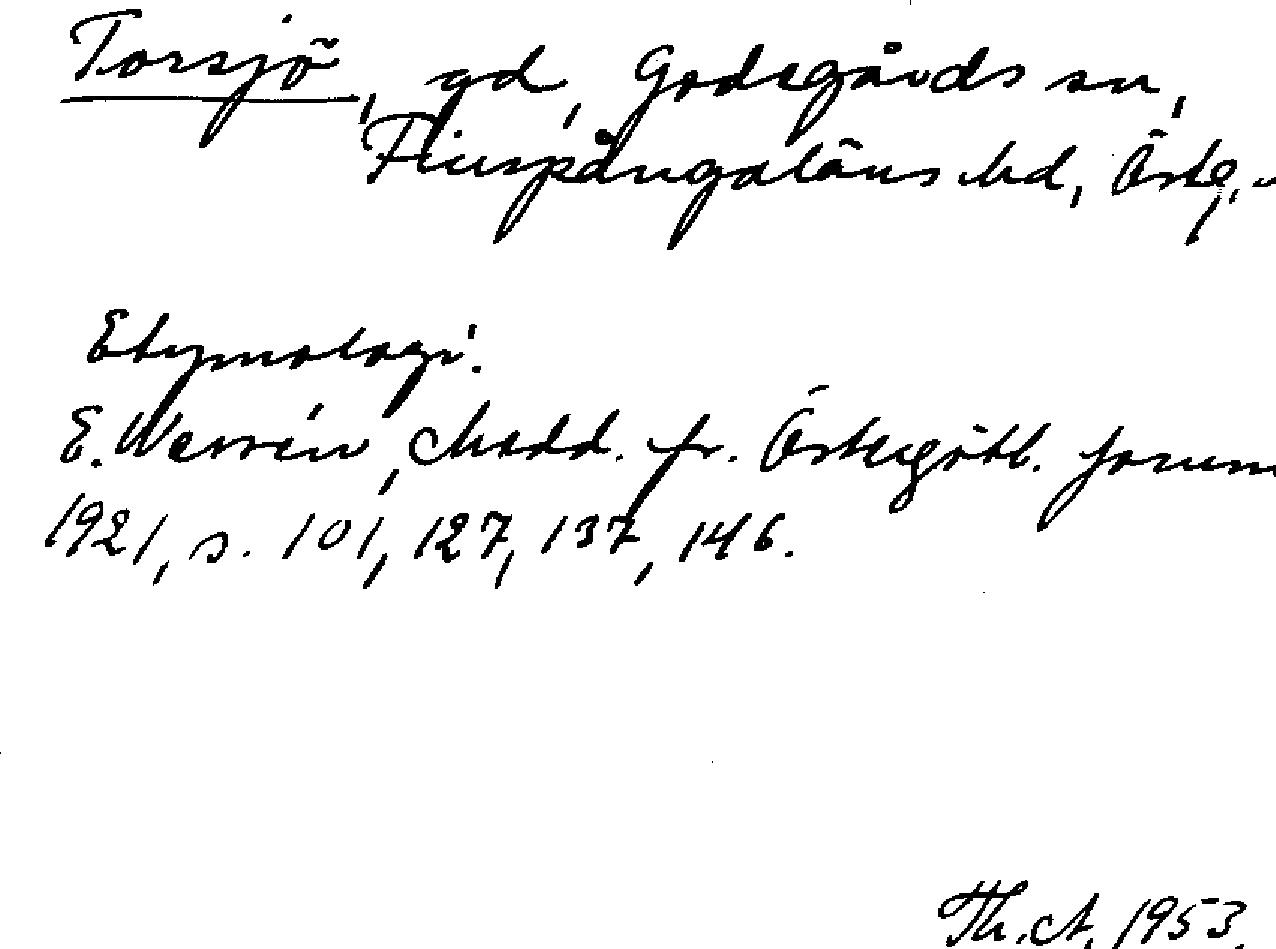 Torsjö, gd, Godegårds sn,
Finspångaläns hd, Östg.
Etymologi.
E. Wessén, Medd. fr. Östergötl. fornm
1921, s. 101, 127, 137, 146.
Th. A. 1953.